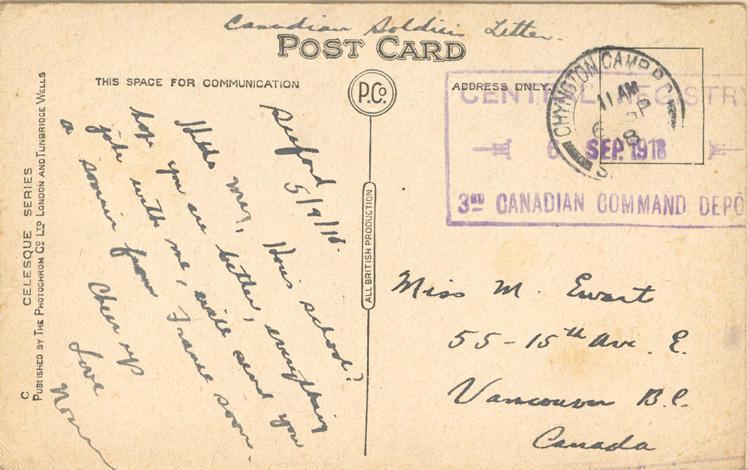 Canadian Soldier Letter.
POST CARD
THIS SPACE FOR COMMUNICATION
P.Co.
ADDRESS ONLY.
CHYNGTON CAMP P.O.
11 AM
6 SP
18
CENTRAL REGISTRY
6 SEP. 1918
3RD CANADIAN COMMAND DEPO
Seaford
5/9/18.
Hello May, How's school?
hope you are better, everything
jake with me, will send you
a souvenir from France soon.
Cheer up
Love
Norman
Miss M. Ewart
55-15th Ave. E.
Vancouver B.C.
Canada
ALL BRITISH PRODUCTION
C
CELESQUE SERIES
PUBLISHED BY THE PHOTOCHROM CO. LTD LONDON AND TUNBRIDGE WELLS